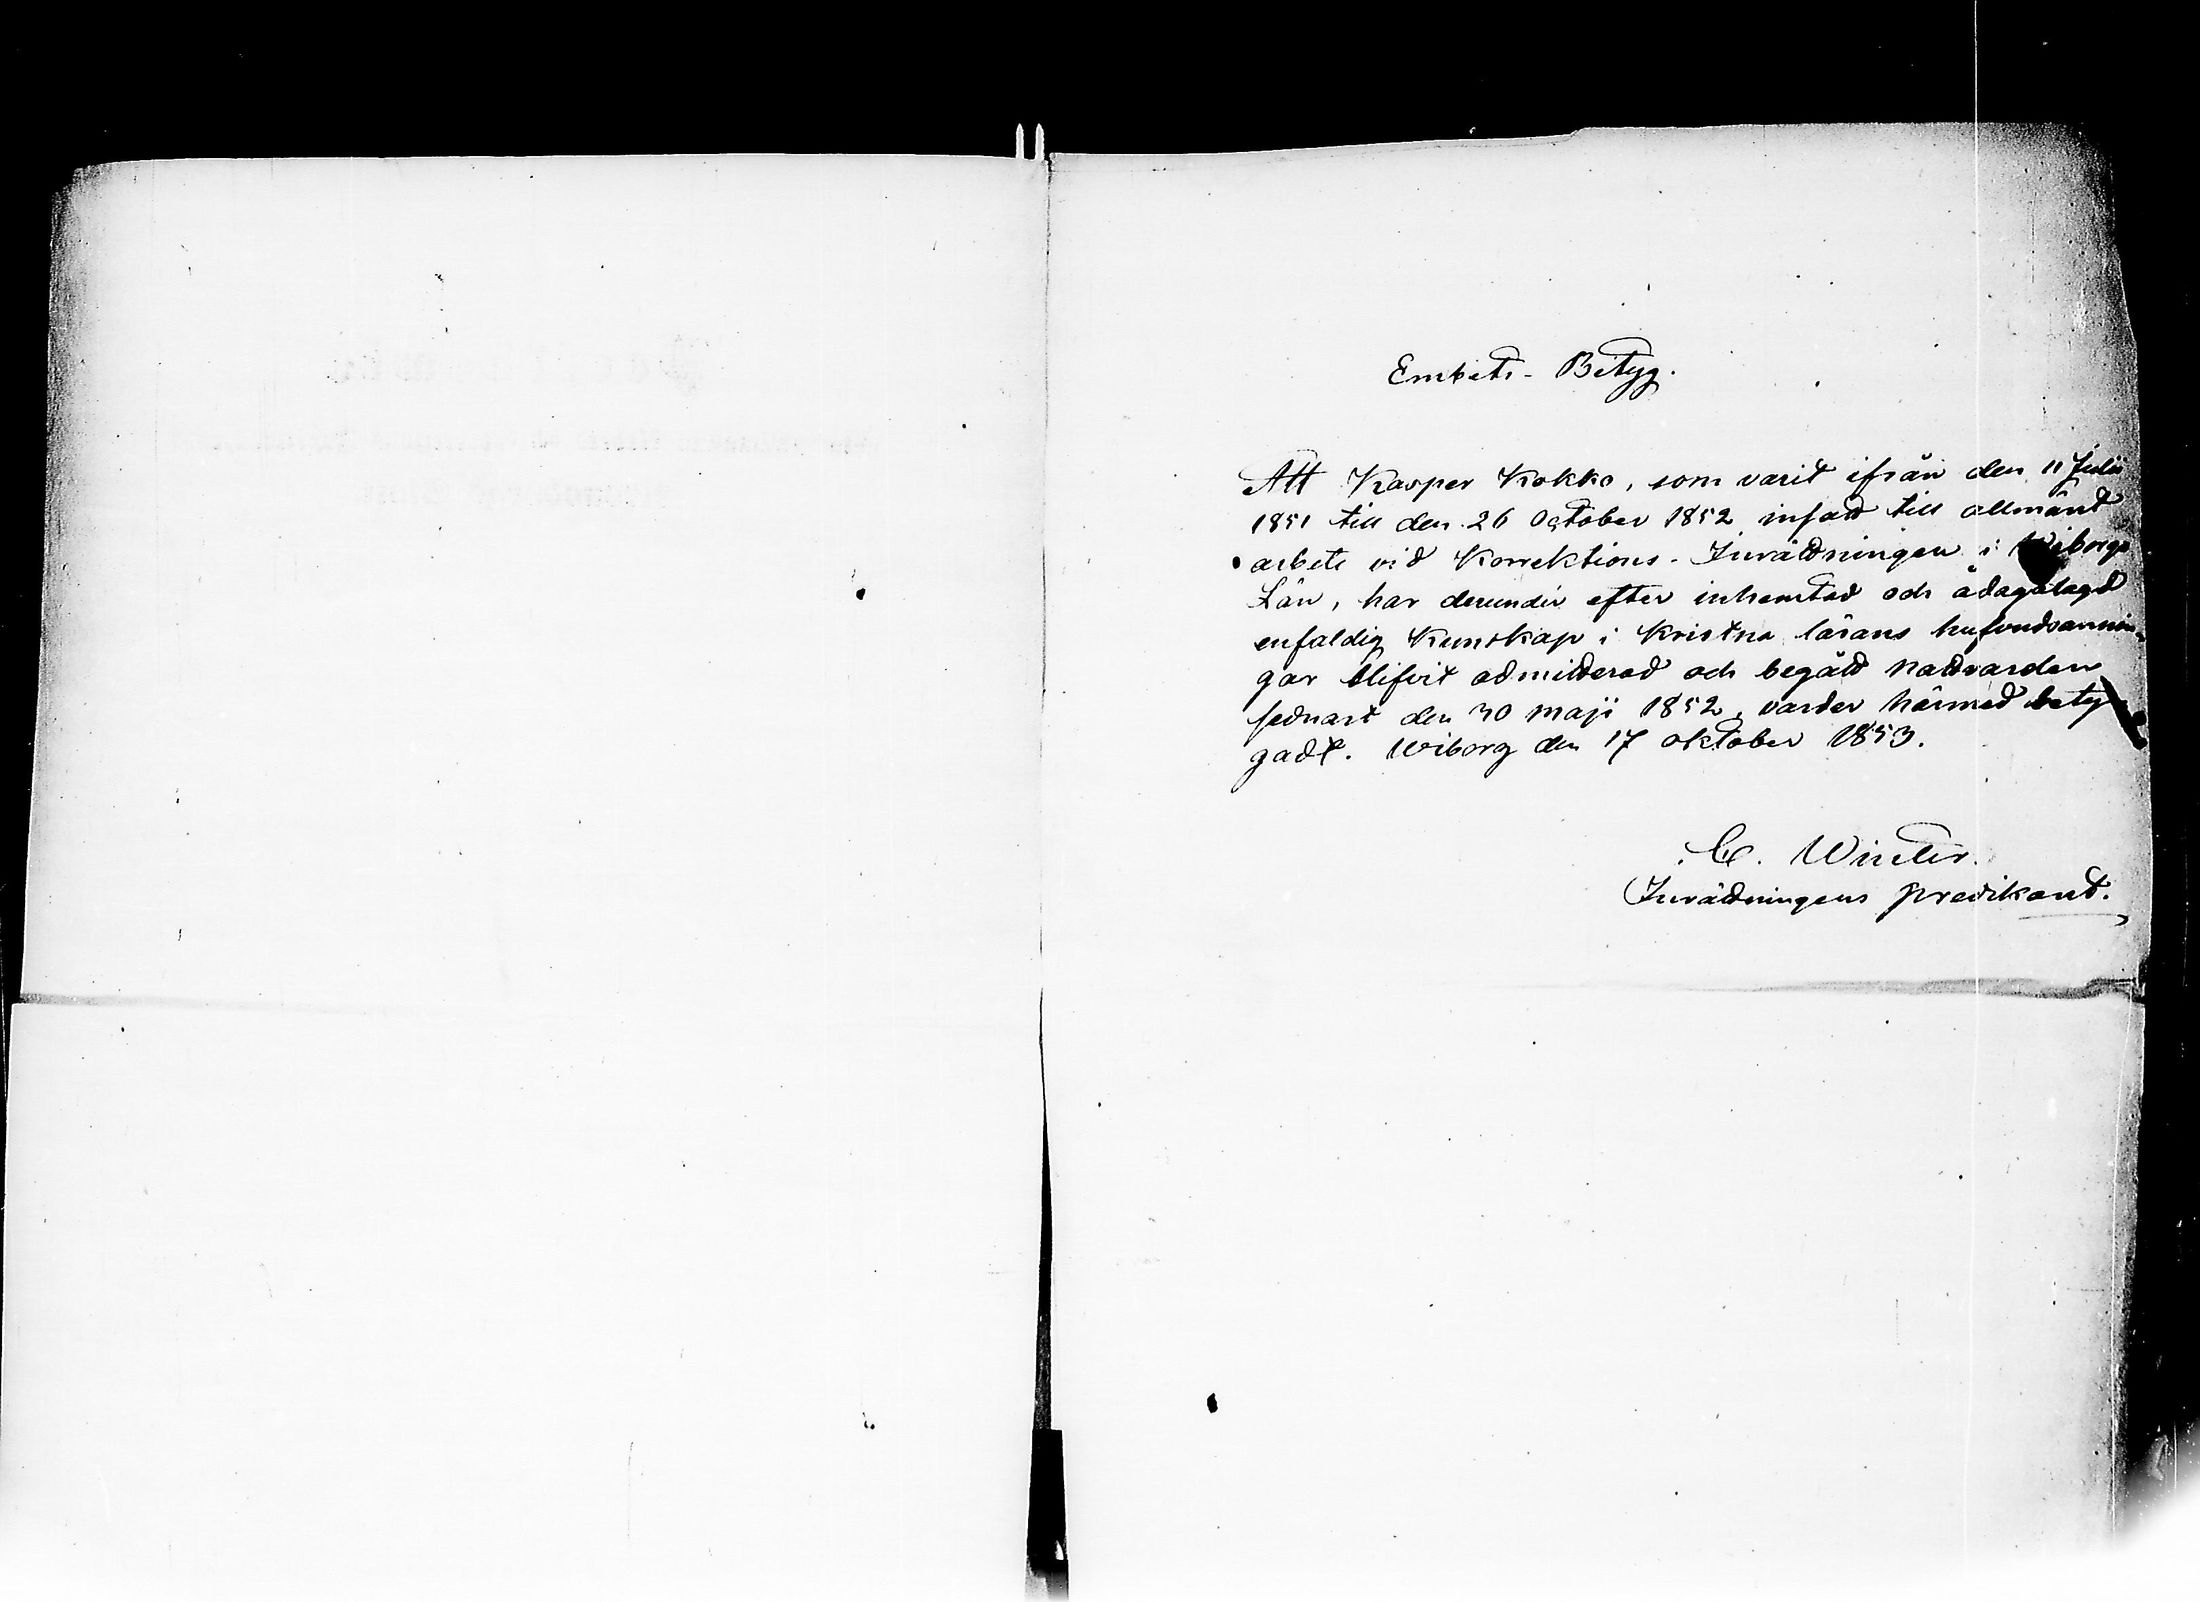 Embets-Betyg.
Att Kasper Kokko, som varit ifrån den 11 Julii
1851 till den 26 October 1852 insatt till allmänt
arbete vid Korrektions-Inrättningen i Wiborgs
Län, har derunder efter inhemtad och ådagalagd
enfaldig Kunskap i Kristna lärans hufvudsannin-
gar blifvit admitterad och begått nattvarden
sednast den 30 maji 1852, varder härmed bety-
gadt. Wiborg den 17 oktober 1853.
C. Winter.
Inrättningens predikant.